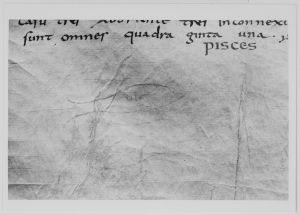 tres inconnexi
sunt omnes quadra ginta una.
PISCES